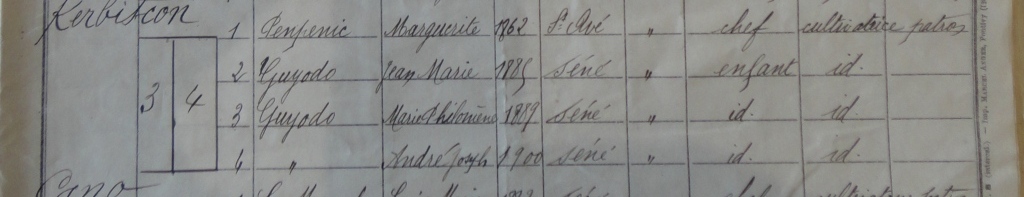 Kerbiscon
1 Penpenic Marguerite 1862 St Avé " chef cultivatrice patron
3 4
2 Guyodo Jean Marie 1885 Séné " enfant id.
3 Guyodo Marie Philomène 1889 Séné " id. id.
4 " André Joseph 1900 Séné " id. id.